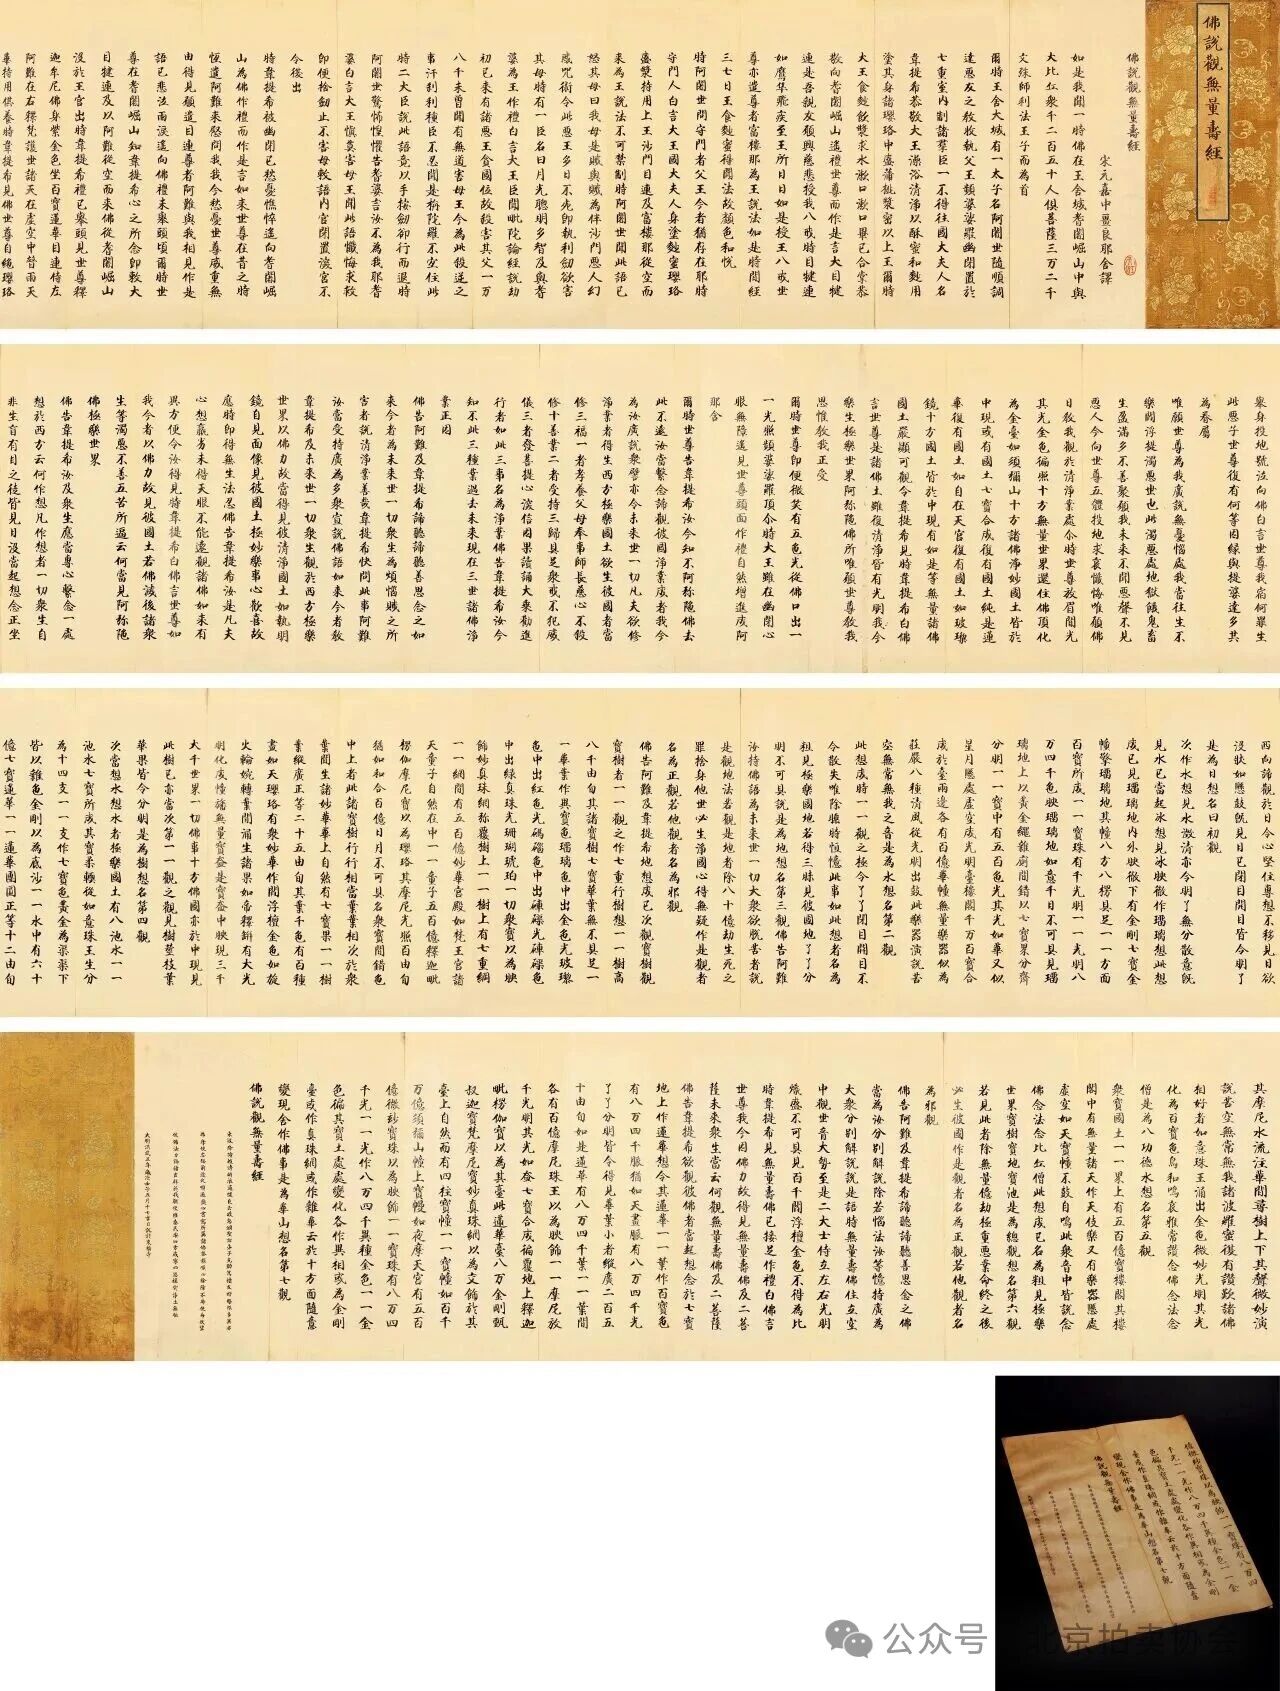 佛說觀無量壽經
佛說觀無量壽經
宋元嘉中畺良耶舍譯
如是我聞一時佛在王舍城耆闍崛山中與
大比丘眾千二百五十人俱菩薩三万二千
文殊師利法王子而為首
爾時王舍大城有一太子名阿闍世隨順調
達惡友之教收執父王頻婆娑羅幽閉置於
七重室內制諸羣臣一不得往國大夫人名
韋提希恭敬大王澡浴清淨以酥蜜和麨用
塗其身諸瓔珞中盛蒲桃漿密以上王爾時
大王食麨飲漿求水漱口漱口畢已合掌恭
敬向耆闍崛山遙禮世尊而作是言大目犍
連是吾親友願興慈悲授我八戒時目犍連
如鷹隼飛疾至王所日日如是授王八戒世
尊亦遣尊者富樓那為王說法如是時間經
三七日王食麨蜜得聞法故顏色和悅
時阿闍世問守門者父王今者猶存在耶時
守門人白言大王國大夫人身塗麨蜜瓔珞
盛漿持用上王沙門目連及富樓那從空而
來為王說法不可禁制時阿闍世聞此語已
怒其母曰我母是賊與賊為伴沙門惡人幻
惑呪術令此惡王多日不死即執利劒欲害
其母時有一臣名曰月光聰明多智及與耆
婆為王作禮白言大王臣聞毗陀論經說劫
初已來有諸惡王貪國位故殺害其父一万
八千未曾聞有無道害母王今為此殺逆之
事汙剎利種臣不忍聞是栴陀羅不宜住此
時二大臣說此語竟以手按劒卻行而退時
阿闍世驚怖惶懼告耆婆言汝不為我耶耆
婆白言大王慎莫害母王聞此語懺悔求救
即便捨劒止不害母敕語內官閉置深宮不
令復出
時韋提希被幽閉已愁憂憔悴遙向耆闍崛
山為佛作禮而作是言如來世尊在昔之時
恆遣阿難來慰問我我今愁憂世尊威重無
由得見願遣目連尊者阿難與我相見作是
語已悲泣雨淚遙向佛禮未舉頭頃爾時世
尊在耆闍崛山知韋提希心之所念即敕大
目犍連及以阿難從空而來佛從耆闍崛山
沒於王宮出時韋提希禮已舉頭見世尊釋
迦牟尼佛身紫金色坐百寶蓮華目連侍左
阿難在右釋梵護世諸天在虛空中普雨天
華持用供養時韋提希見佛世尊自絕瓔珞
舉身投地號泣向佛白言世尊我宿何罪生
此惡子世尊復有何等因緣與提婆達多共
為眷屬
唯願世尊為我廣說無憂惱處我當往生不
樂閻浮提濁惡世也此濁惡處地獄餓鬼畜
生盈滿多不善聚願我未來不聞惡聲不見
惡人今向世尊五體投地求哀懺悔唯願佛
日教我觀於清淨業處介時世尊放眉間光
其光金色徧照十方無量世界還住佛頂化
為金臺如須彌山十方諸佛淨妙國土皆於
中現或有國土七寶合成復有國土純是蓮
華復有國土如自在天宮復有國土如玻瓈
鏡十方國土皆於中現有如是等無量諸佛
國土嚴顯可觀令韋提希見時韋提希白佛
言世尊是諸佛土雖復清淨皆有光明我今
樂生極樂世界阿彌陁佛所唯願世尊教我
思惟教我正受
爾時世尊即便微笑有五色光從佛口出一
一光照頻婆娑羅頂介時大王雖在幽閉心
眼無障遙見世尊頭面作禮自然增進成阿
那含
爾時世尊告韋提希汝今知不阿彌陁佛去
此不遠汝當繫念諦觀彼國淨業成者我今
為汝廣說衆譬亦令未來世一切凡夫欲修
淨業者得生西方極樂國土欲生彼國者當
修三福一者孝養父母奉事師長慈心不殺
修十善業二者受持三歸具足衆戒不犯威
儀三者發菩提心深信因果讀誦大乘勸進
行者如此三事名為淨業佛告韋提希汝今
知不此三種業過去未來現在三世諸佛淨
業正因
佛告阿難及韋提希諦聽諦聽善思念之如
來今者為未來世一切衆生為煩惱賊之所
害者說清淨業善哉韋提希快問此事阿難
汝當受持廣為多衆宣說佛語如來今者教
韋提希及未來世一切衆生觀於西方極樂
世界以佛力故當得見彼清淨國土如執明
鏡自見面像見彼國土極妙樂事心歡喜故
應時即得無生法忍佛告韋提希汝是凡夫
心想羸劣未得天眼不能遠觀諸佛如來有
異方便令汝得見時韋提希白佛言世尊如
我今者以佛力故見彼國土若佛滅後諸衆
生等濁惡不善五苦所逼云何當見阿彌陁
佛極樂世界
佛告韋提希汝及衆生應當專心繫念一處
想於西方云何作想凡作想者一切衆生自
非生盲有目之徒皆見日沒當起想念正坐
西向諦觀於日令心堅住專想不移見日欲
沒狀如懸鼓旣見日已閉目開目皆令明了
是為日想名曰初觀
次作水想見水澂清亦令明了無分散意旣
見水已當起冰想見冰映徹作瑠璃想此想
成已見瑠璃地內外映徹下有金剛七寶金
幢擎瑠璃地其幢八方八楞具足一一方面
百寶所成一一寶珠有千光明一一光明八
万四千色映瑠璃地如億千日不可具見瑠
璃地上以黃金繩雜廁間錯以七寶界分齊
分明一一寶中有五百色光其光如華又似
星月懸處虛空成光明臺樓閣千万百寶合
成於臺兩邊各有百億華幢無量樂器以為
莊嚴八種清風從光明出鼓此樂器演說苦
空無常無我之音是為水想名第二觀
此想成時一一觀之極令了了閉目開目不
令散失唯除睡時恆憶此事如此想者名為
粗見極樂國地若得三昧見彼國地了了分
明不可具說是為地想名第三觀佛告阿難
汝持佛語為未來世一切大衆欲脫苦者說
是觀地法若觀是地者除八十億劫生死之
罪捨身他世必生淨國心得無疑作是觀者
名為正觀若他觀者名為邪觀
佛告阿難及韋提希地想成已次觀寶樹觀
寶樹者一一觀之作七重行樹想一一樹高
八千由旬其諸寶樹七寶華葉無不具足一
一華葉作異寶色瑠璃色中出金色光玻瓈
色中出紅色光碼碯色中出硨磲光硨磲色
中出綠真珠光珊瑚琥珀一切衆寶以為映
飾妙真珠網彌覆樹上一一樹上有七重網
一一網間有五百億妙華宮殿如梵王宮諸
天童子自然在中一一童子五百億釋迦毗
楞伽摩尼寶以為瓔珞其摩尼光照百由旬
猶如和合百億日月不可具名衆寶間錯色
中上者此諸寶樹行行相當葉葉相次於衆
葉間生諸妙華華上自然有七寶果一一樹
葉縱廣正等二十五由旬其葉千色有百種
畫如天瓔珞有衆妙華作閻浮檀金色如旋
火輪婉轉葉間涌生諸果如帝釋缾有大光
明化成幢旛無量寶蓋是寶蓋中映現三千
大千世界一切佛事十方佛國亦於中現見
此樹已亦當次第一一觀之觀見樹莖枝葉
華果皆令分明是為樹想名第四觀
次當想水想水者極樂國土有八池水一一
池水七寶所成其寶柔輭從如意珠王生分
為十四支一一支作七寶色黃金為渠渠下
皆以雜色金剛以為底沙一一水中有六十
億七寶蓮華一一蓮華團圓正等十二由旬
其摩尼水流注華間尋樹上下其聲微妙演
說苦空無常無我諸波羅蜜復有讚歎諸佛
相好者如意珠王涌出金色微妙光明其光
化為百寶色鳥和鳴哀雅常讚念佛念法念
僧是為八功德水想名第五觀
衆寶國土一一界上有五百億寶樓閣其樓
閣中有無量諸天作天伎樂又有樂器懸處
虛空如天寶幢不鼓自鳴此衆音中皆說念
佛念法念比丘僧此想成已名為粗見極樂
世界寶樹寶地寶池是為總觀想名第六觀
若見此者除無量億劫極重惡業命終之後
必生彼國作是觀者名為正觀若他觀者名
為邪觀
佛告阿難及韋提希諦聽諦聽善思念之佛
當為汝分別解說除苦惱法汝等憶持廣為
大衆分別解說說是語時無量壽佛住立空
中觀世音大勢至是二大士侍立左右光明
熾盛不可具見百千閻浮檀金色不得為比
時韋提希見無量壽佛已接足作禮白佛言
世尊我今因佛力故得見無量壽佛及二菩
薩未來衆生當云何觀無量壽佛及二菩薩
佛告韋提希欲觀彼佛者當起想念於七寶
地上作蓮華想令其蓮華一一葉作百寶色
有八万四千脈猶如天畫脈有八万四千光
了了分明皆令得見華葉小者縱廣二百五
十由旬如是蓮華有八万四千葉一一葉間
各有百億摩尼珠王以為映飾一一摩尼放
千光明其光如葢七寶合成徧覆地上釋迦
毗楞伽寶以為其臺此蓮華臺八万金剛甄
叔迦寶梵摩尼寶妙真珠網以為交飾於其
臺上自然而有四柱寶幢一一寶幢如百千
万億須彌山幢上寶幔如夜摩天宮有五百
億微妙寶珠以為映飾一一寶珠有八万四
千光一一光作八万四千異種金色一一金
色徧其寶土處處變化各作異相或為金剛
臺或作真珠網或作雜華雲於十方面隨意
變現舍作佛事是為華山想名第七觀
佛說觀無量壽經
公众号
北京拍卖协会